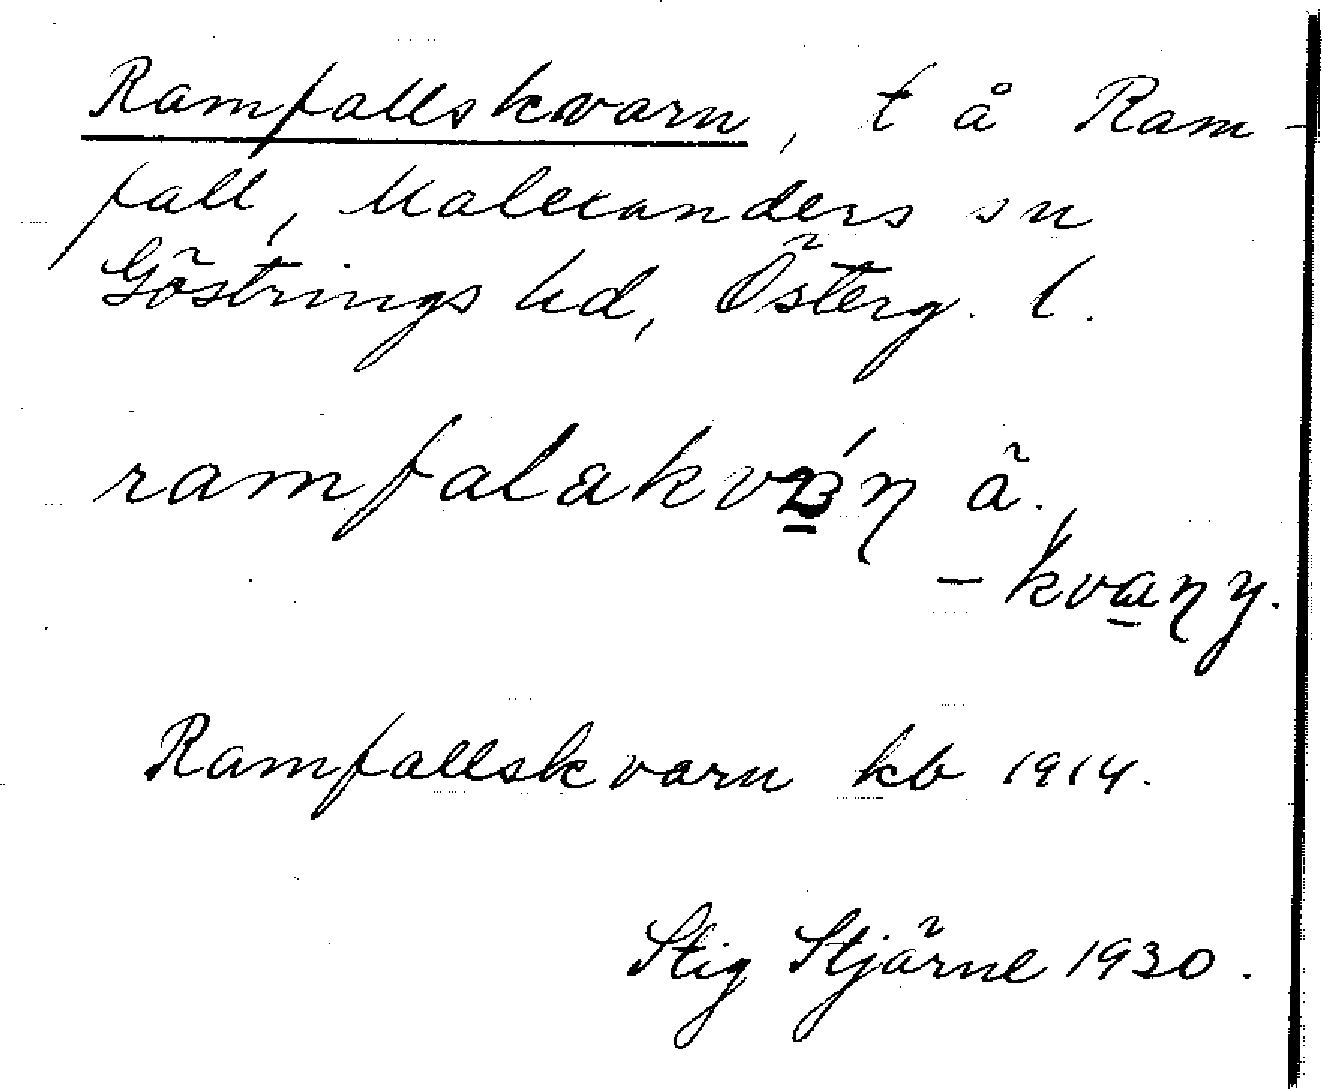 Ramfallskvarn, t å Ram-
fall, Malexanders sn
Göstrings hd, Österg. l.
ramfalakv ä.
-kvaɳ y.
Ramfallskvarn kb 1914.
Stig Stjärne 1930.